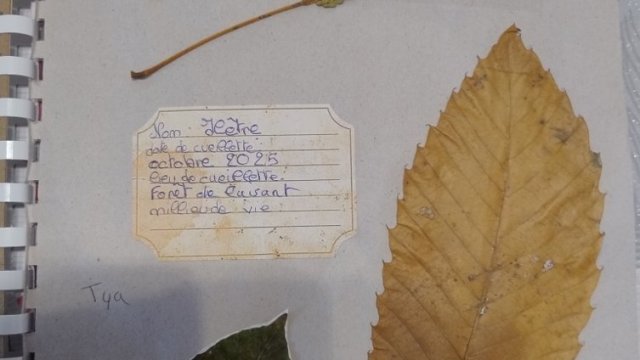 Nom: Hêtre
date de cueillette:
octobre 2025
lieu de cueillette:
Forêt de Cavsant
milieu de vie:
Tya